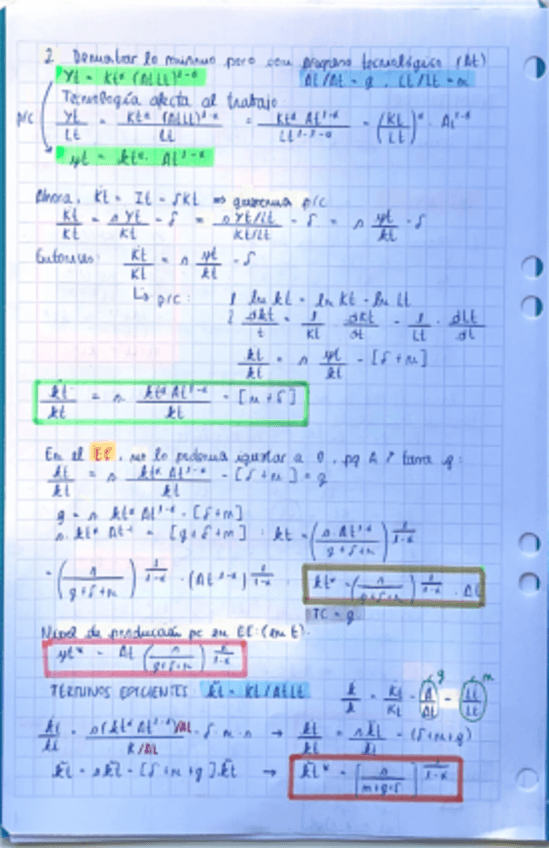 2. Demostrar lo mismo pero con progreso tecnológico (At)
Yt = Kt^α (AtLt)^1-α    Ȧt/At = g , L̇t/Lt = n
Tecnología afecta al trabajo
p/c  Yt/Lt = Kt^α (AtLt)^1-α / Lt = Kt^α At^1-α / Lt^1-1-α = (Kt/Lt)^α · At^1-α
yt = kt^α · At^1-α
Ahora, K̇t = It - δKt ⇒ queremos p/c
K̇t/Kt = s Yt/Kt - δ = s Yt/Lt / Kt/Lt - δ = s yt/kt - δ
Entonces: K̇t/Kt = s yt/kt - δ
↳ p/c: ln kt = ln Kt - ln Lt
dkt/t = 1/Kt · dKt/dt - 1/Lt · dLt/dt
k̇t/kt = s yt/kt - [δ + n]
k̇t/kt = s kt^α At^1-α / kt - [n + δ]
En el EE, no lo podemos igualar a 0, pq A ↑ tasa g:
k̇t/kt = s kt^α At^1-α / kt - [δ + n] = g
g = s kt^α At^1-α - [δ+n]
s · kt^α At^1 = [g + δ + n] : kt = (s At^1-α / g+δ+n)^1/1-α
= (s / g+δ+n)^1/1-α · (At^1-α)^1/1-α : kt* = (s / g+δ+n)^1/1-α · At
TC = g
Nivel de producción pc en EE: (en t).
yt* = At (s / g+δ+n)^α/1-α
TÉRMINOS EFICIENTES k̃t = Kt / AtLt    k̇/k = K̇t/Kt - Ȧ/At - L̇t/Lt    g    n
k̇t/kt = s(kt^α At^1-α)/At / K/At - δ - n - → k̇t/kt = s kt/kt - (δ+n+g)
k̃t = s kt - [δ+n+g] k̃t → k̃t* = [s / n+g+δ]^1/1-α